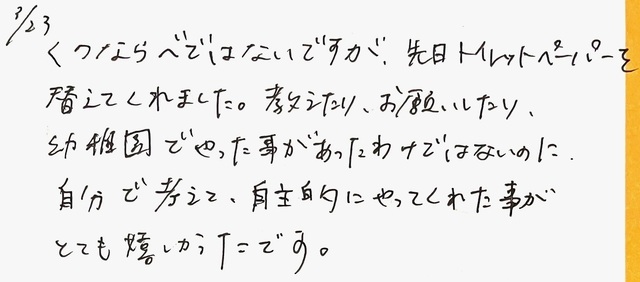 3/23
くつならべではないですが、先日トイレットペーパーを
替えてくれました。教えたり、お願いしたり、
幼稚園でやった事があったわけではないのに、
自分で考えて、自主的にやってくれた事が
とても嬉しかったです。